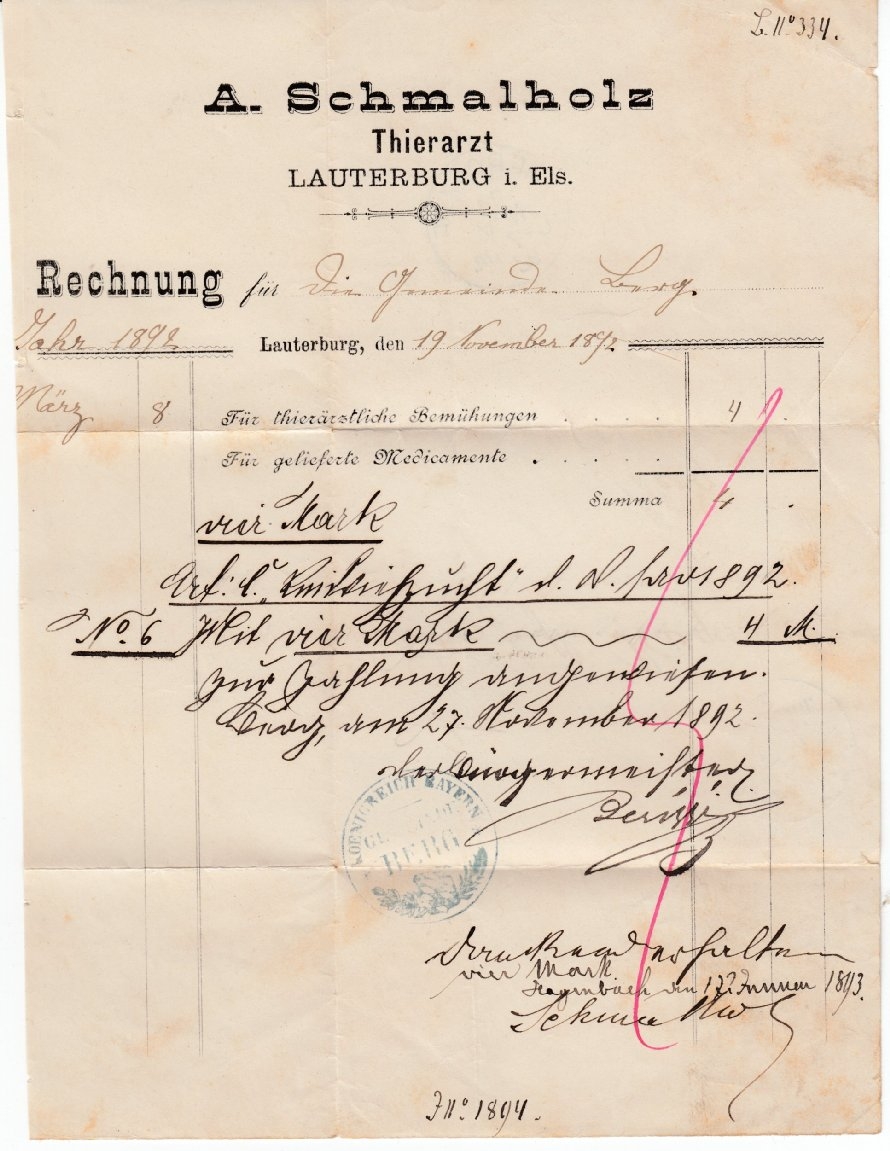 L. No 334.
A. Schmalholz
Thierarzt
LAUTERBURG i. Els.
Rechnung für die Gemeinde Berg.
Jahr 1892 Lauterburg, den 19 November 1892
März 8 Für thierärztliche Bemühungen 4 .
Für gelieferte Medicamente
Summa 4 .
vier Mark
1892.
No. 6 Mit vier Mark 4 M.
zur Zahlung angewiesen.
Berg, am 27. November 1892.
der Bürgermeister
KOENIGREICH BAYERN
BERG
dankend erhalten
vier Mark
Hagenbach den 17 Januar 1893.
Schmalholz
J No. 1894.